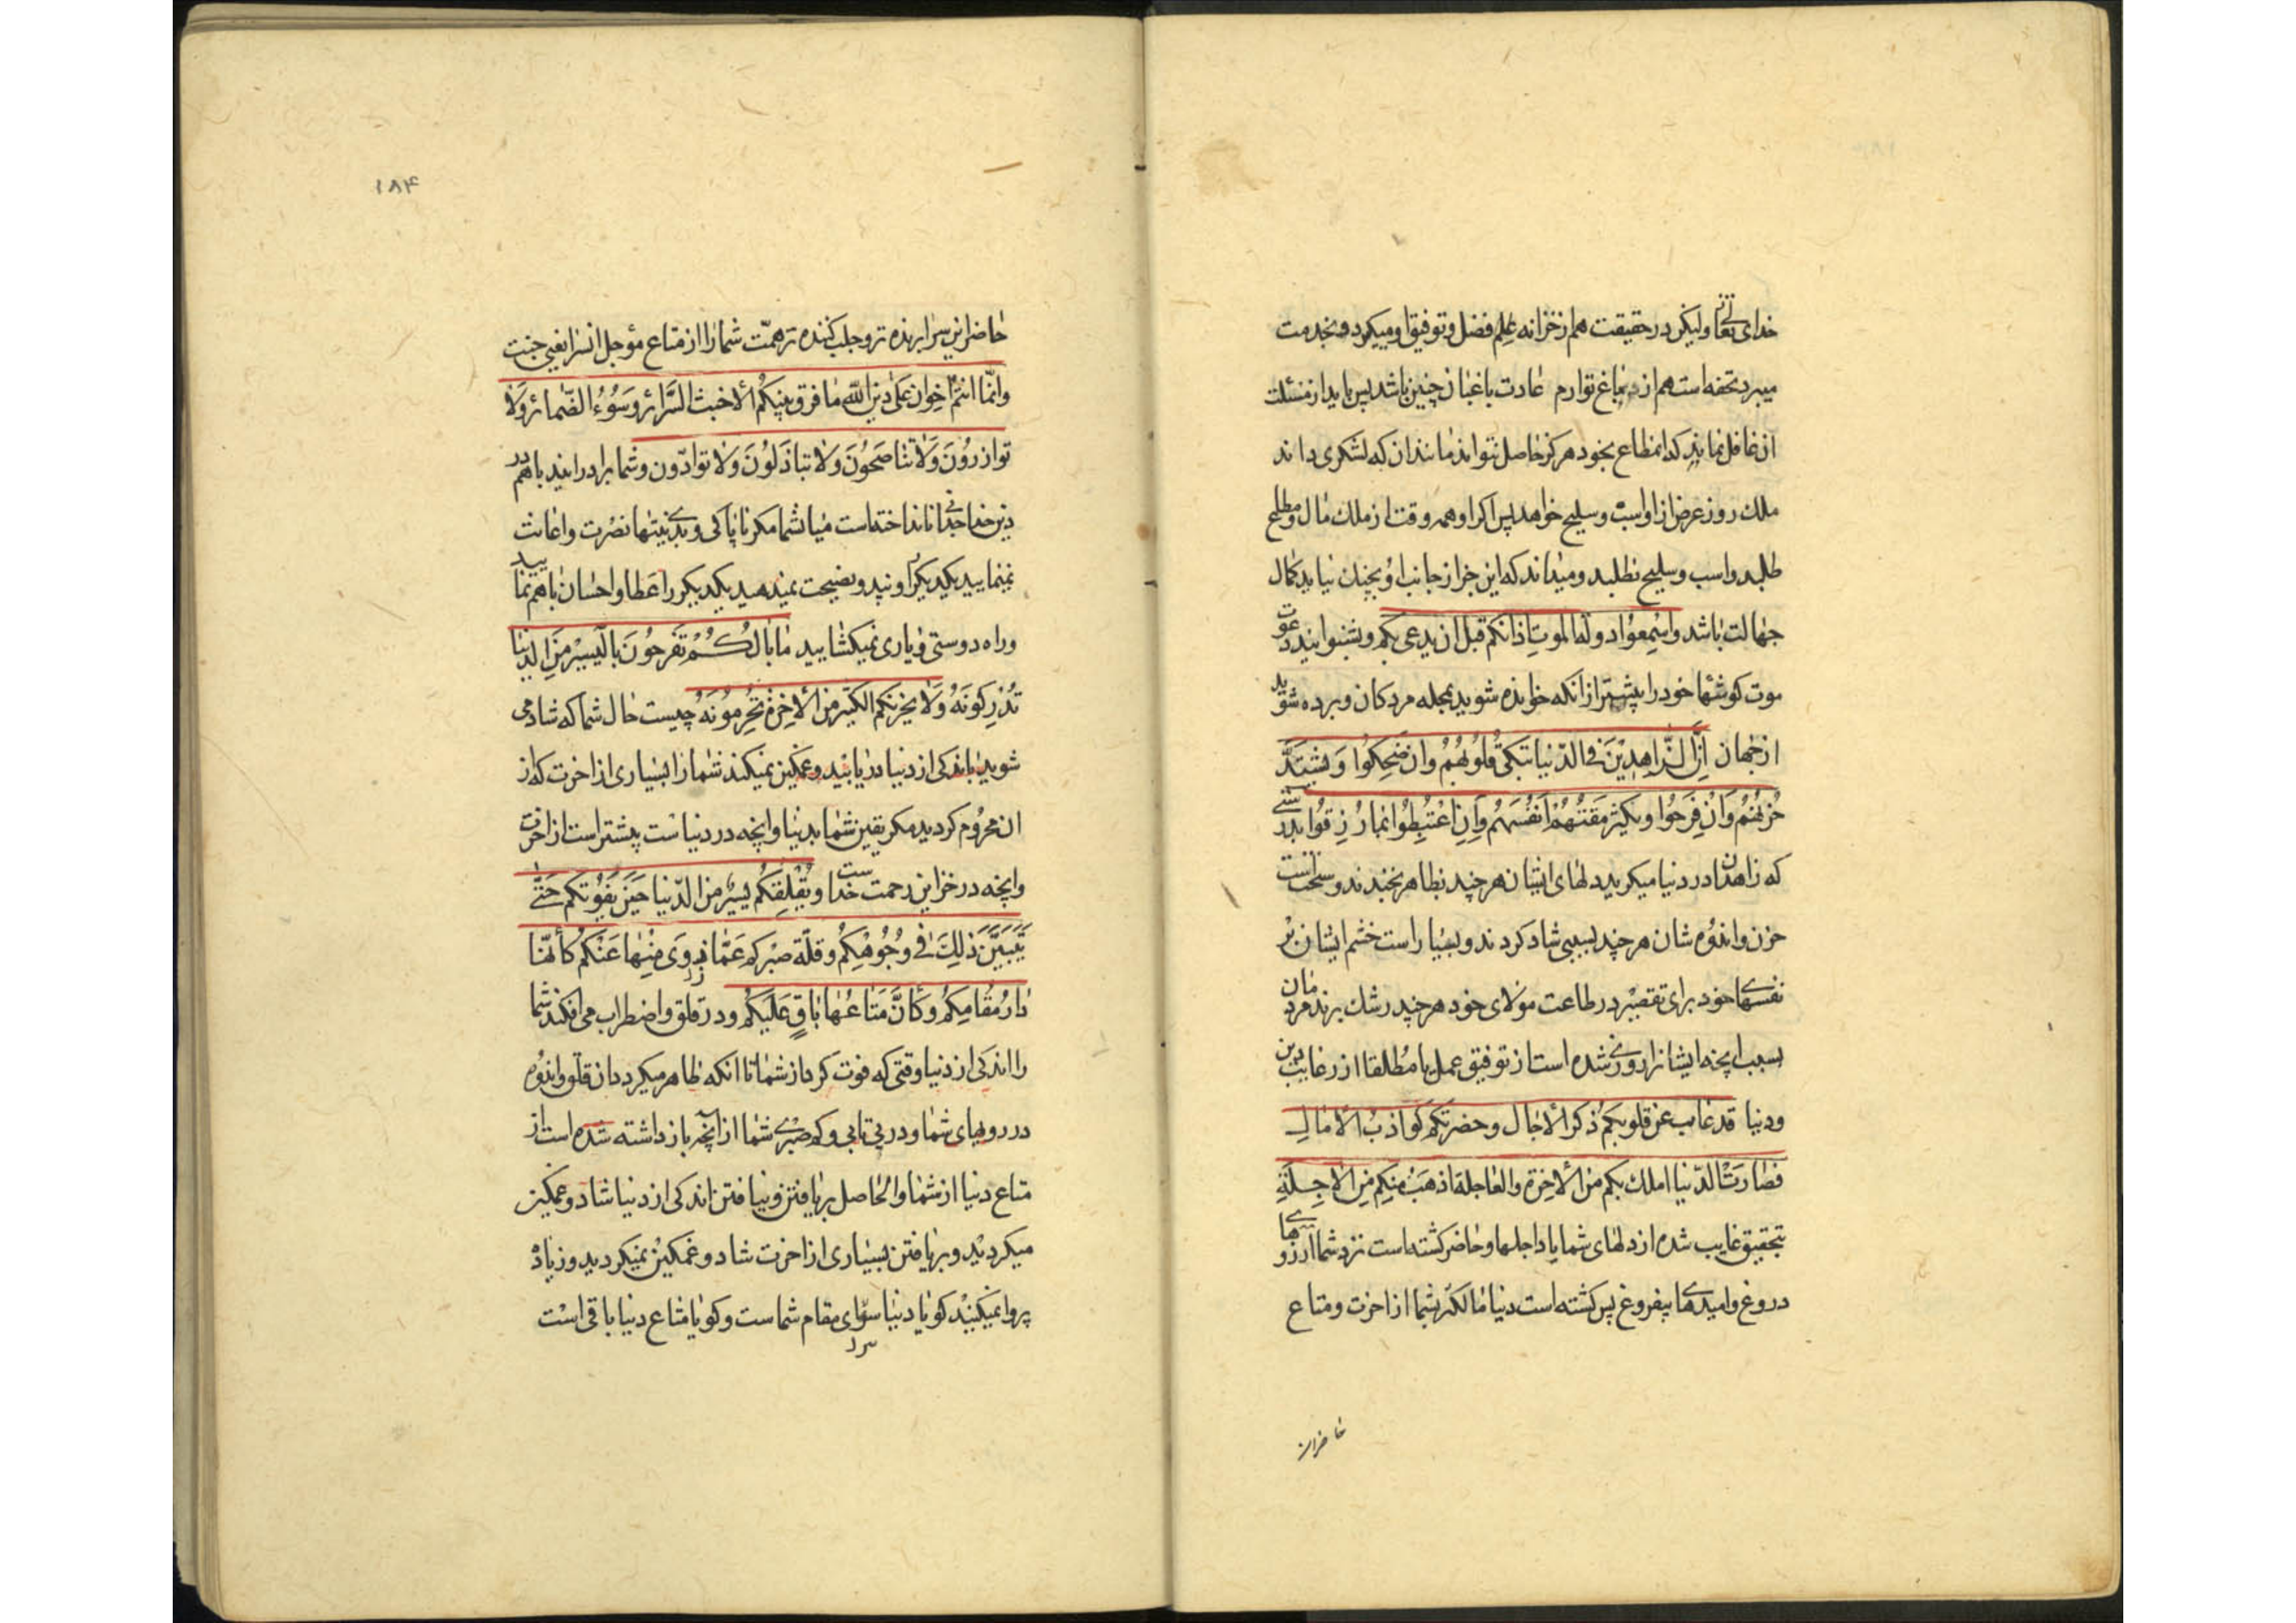 خدای تعالی ولیکن در حقیقت هم از خزانه علم فضل و توفیق او میگیرد و بخدمت
میبرد تحفه است هم از باغ توارم عادت باغبان چنین باشد پس باید از منزلت
ان غافل نماند که انقطاع بخود هرکز حاصل نتواند مانند ان که لشکری داند
ملک روز عرض از او اسب و سلیح خواهد پس اکر او همه وقت از ملک مال و مطلح
طلبد و اسب و سلیح نطلبد و میداند که این جز از جانب او بچنان نیاید کمال
جهالت باشد واسمعوا دعوة الموت اذانکم قبل ان یدعی بکم و بشنوانید دعوت
موت کوشها خود را پیشتر از انکه خوانده شوید بجمله مردکان و برده شوید
از جهان ان الزاهدین فی الدنیا تبکی قلوبهم وان ضحکوا و یشتد
حزنهم وان فرحوا و یکثر مقتهم انفسهم وان اغتبطوا بما رزقوا بدرستی
که زاهدان در دنیا میکرید دلهای ایشان هر چند بظاهر بخندند و سختست
حزن و اندوه شان هر چند بسببی شاد کردند و بسیار است خشم ایشان بر
نفسهای خود برای تقصیر در طاعت مولای خود هر چند رشک برند مردمان
بسبب انچه ایشانرا روزی شده است از توفیق عمل یا مطلقا از رغایب دین
و دنیا قد غاب عن قلوبکم ذکر الاجال و حضرتکم کواذب الامال
فصارت الدنیا املک بکم من الاخرة والعاجلة اذهب بکم من الاجلة
بتحقیق غایب شده از دلهای شما یاد اجلها و حاضر کشته است نزد شما ارزوهای
دروغ و امیدهای بیفروغ پس کشته است دنیا مالکتر بشما از اخرت و متاع
حاضران
۱۸۴
حاضر این سرا برنده تر و جلب کننده تر همت شما را از متاع مؤجل انسرا یعنی جنت
وانما انتم اخوان علی دین الله ما فرق بینکم الا خبث السرائر وسوء الضمائر ولا
توازرون ولا تناصحون ولا تباذلون ولا توادون و شما برادرانید باهم در
دین خدا جدائی نانداخته است میان شما مکر ناپاکی و بدی نیتها نصرت و اعانت
نمینمایید یکدیکر را و نصیحت نمیدهید یکدیکر را عطا و احسان باهم نمایید
و راه دوستی و یاری نمیکشایید ما بالکم تفرحون بالیسیر من الدنیا
تدرکونه ولا یحزنکم الکثیر من الاخرة تحرمونه چیست حال شما که شاد می
شوید باندکی از دنیا دریابید و غمکین نمیکند شما را بسیاری از اخرت که از
ان محروم کردید مکر یقین شما بدنیا وانچه در دنیاست پیشتر است از اخرت
وانچه در خزاین رحمت خداست و یقلقکم یسیر من الدنیا حین یفوتکم حتی
یتبین ذلک فی وجوهکم و قلة صبرکم عما زوی منها عنکم کانها
دار مقامکم وکان متاعها باق علیکم و در قلق و اضطراب می افکند شما
را اندکی از دنیا وقتی که فوت کردد از شما تا انکه ظاهر میکردد ان قلق و اندوه
در رویهای شما و در بی تابی و کم صبری شما از انچه باز داشته شده است از
متاع دنیا از شما والحاصل بر یافتن و نیافتن اندکی از دنیا شاد و غمکین
میکردید و بر یافتن بسیاری از اخرت شاد و غمکین نمیکردید و زیاده
پروا نمیکنید کویا دنیا سرای مقام شماست و کویا متاع دنیا باقی است